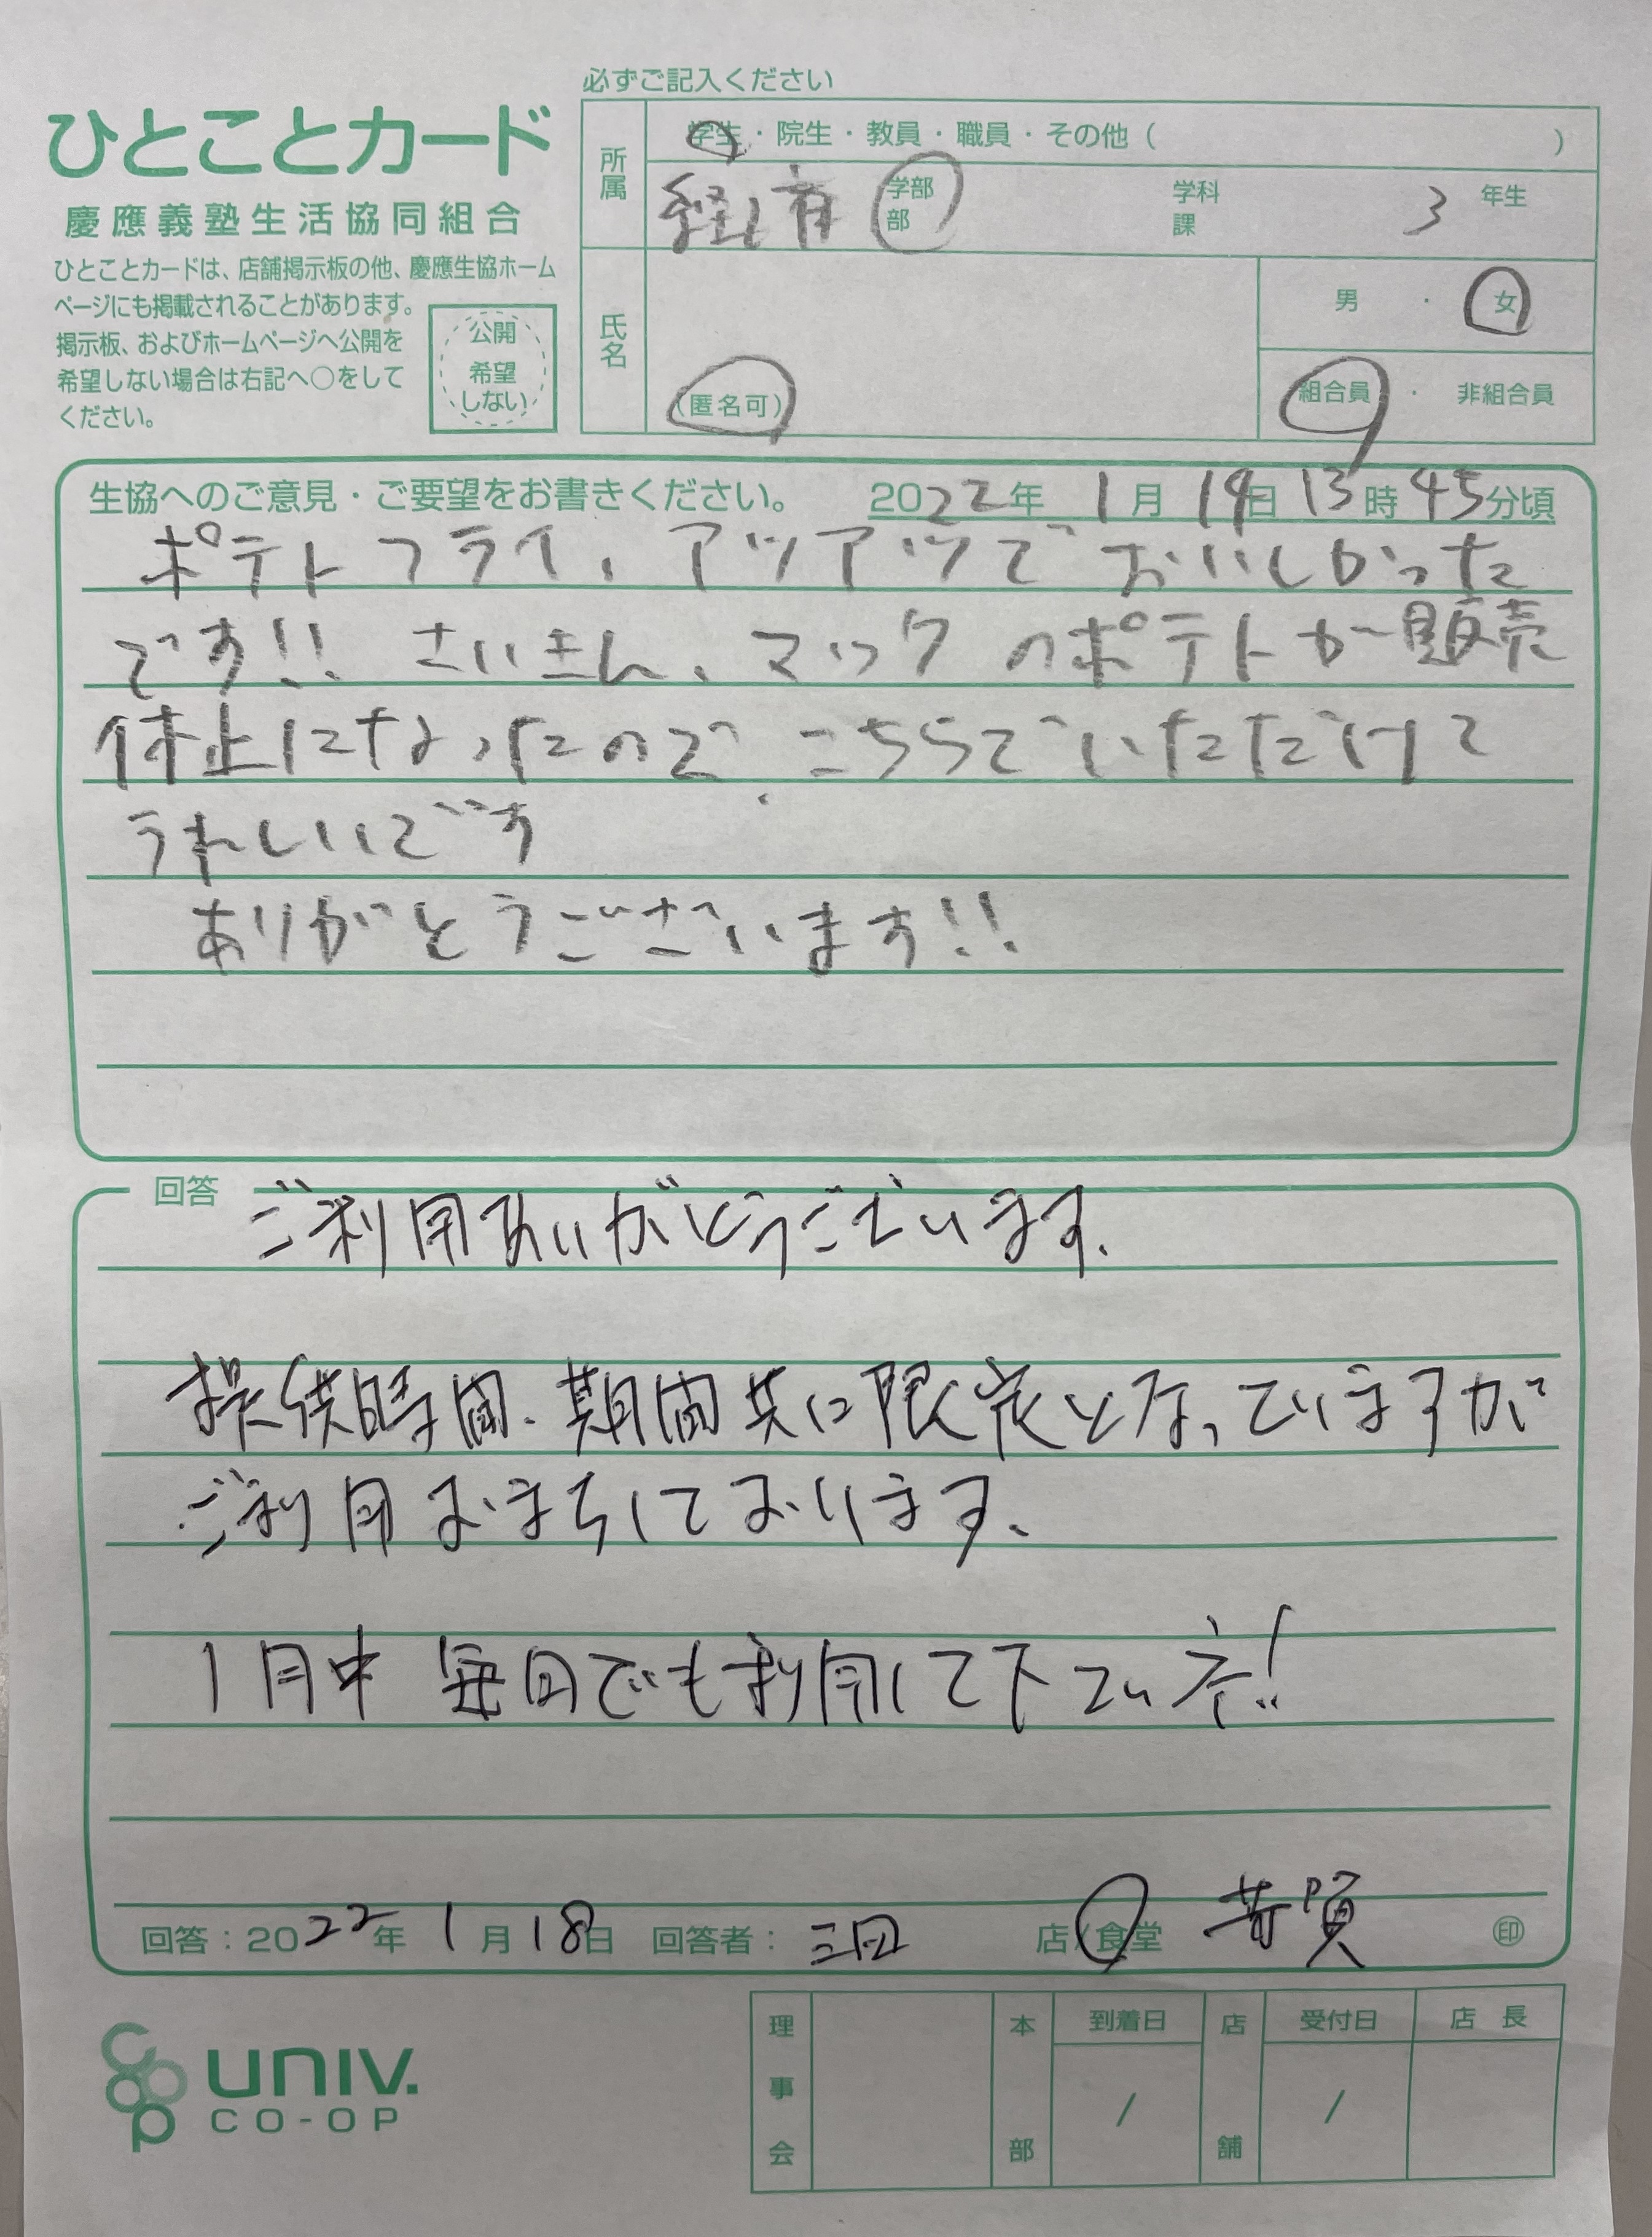 必ずご記入ください
ひとことカード
慶應義塾生活協同組合
ひとことカードは、店舗掲示板の他、慶應生協ホーム
ページにも掲載されることがあります。
掲示板、およびホームページへ公開を
希望しない場合は右記へ○をして
ください。
公開
希望
しない
所属
学生・院生・教員・職員・その他（ ）
経済 学部 学科 3 年生
部 課
氏名
（匿名可）
男 ・ 女
組合員 ・ 非組合員
生協へのご意見・ご要望をお書きください。 2022年 1月 14日 13時 45分頃
ポテトフライ、アツアツでおいしかった
です!! さいきん、マックのポテトが販売
休止になったので こちらでいただけて
うれしいです
ありがとうございます!!
回答
ご利用ありがとうございます。
提供時間、期間共に限定となっていますが
ご利用おまちしております。
1月中 毎日でも利用して下さいネ!
回答：2022年 1月 18日 回答者： 三田 店／食堂 芳賀 ㊞
UNIV.
CO-OP
理事会
本部
到着日
/
店舗
受付日
/
店長